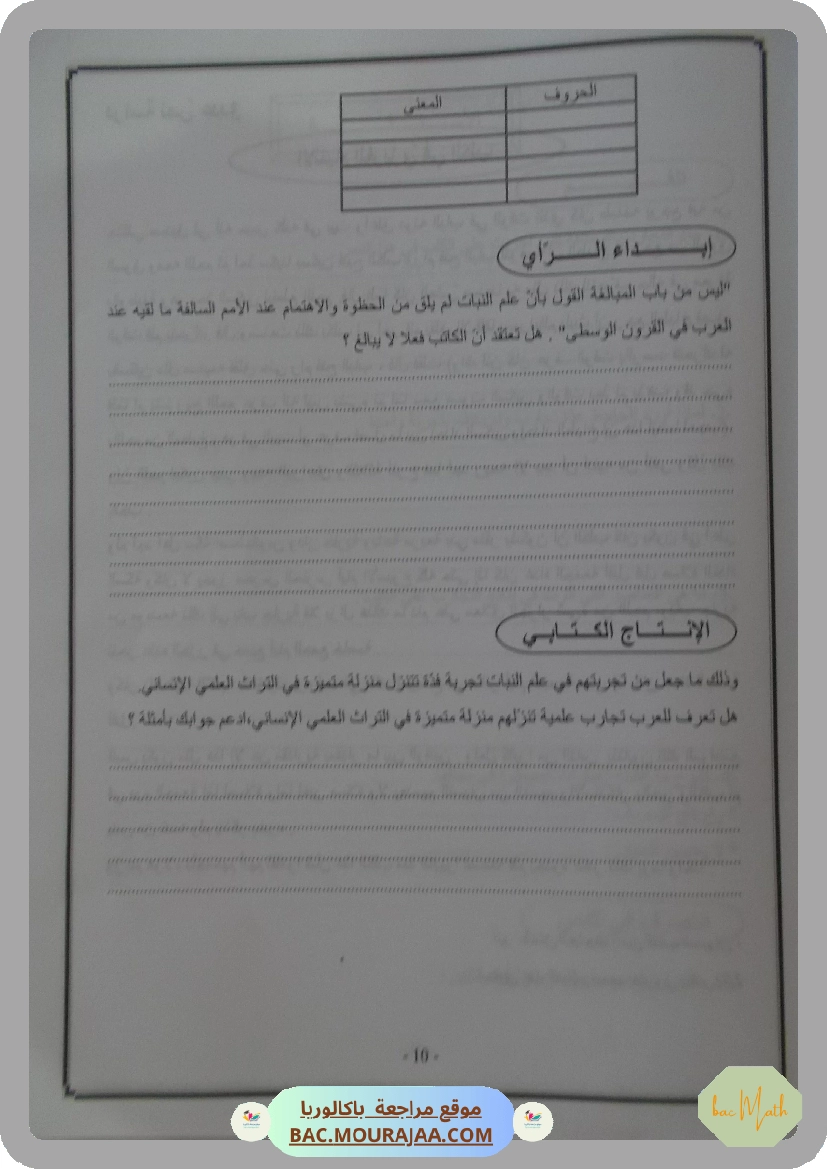 الحروف المعنى
إبـــــداء الـــــرّأي
"ليس من باب المبالغة القول بأنّ علم النبات لم يلق من الحظوة والاهتمام عند الأمم السالفة ما لقيه عند
العرب في القرون الوسطى" . هل تعتقد أنّ الكاتب فعلا لا يبالغ ؟
الإنـتــــاج الكـتـــابـي
وذلك ما جعل من تجربتهم في علم النبات تجربة فذّة تتنزل منزلة متميزة في التراث العلمي الإنساني.
هل تعرف للعرب تجارب علمية تنزّلهم منزلة متميزة في التراث العلمي الإنساني،ادعم جوابك بأمثلة ؟
- 16 -
موقع مراجعة باكالوريا
BAC.MOURAJAA.COM
bac Math